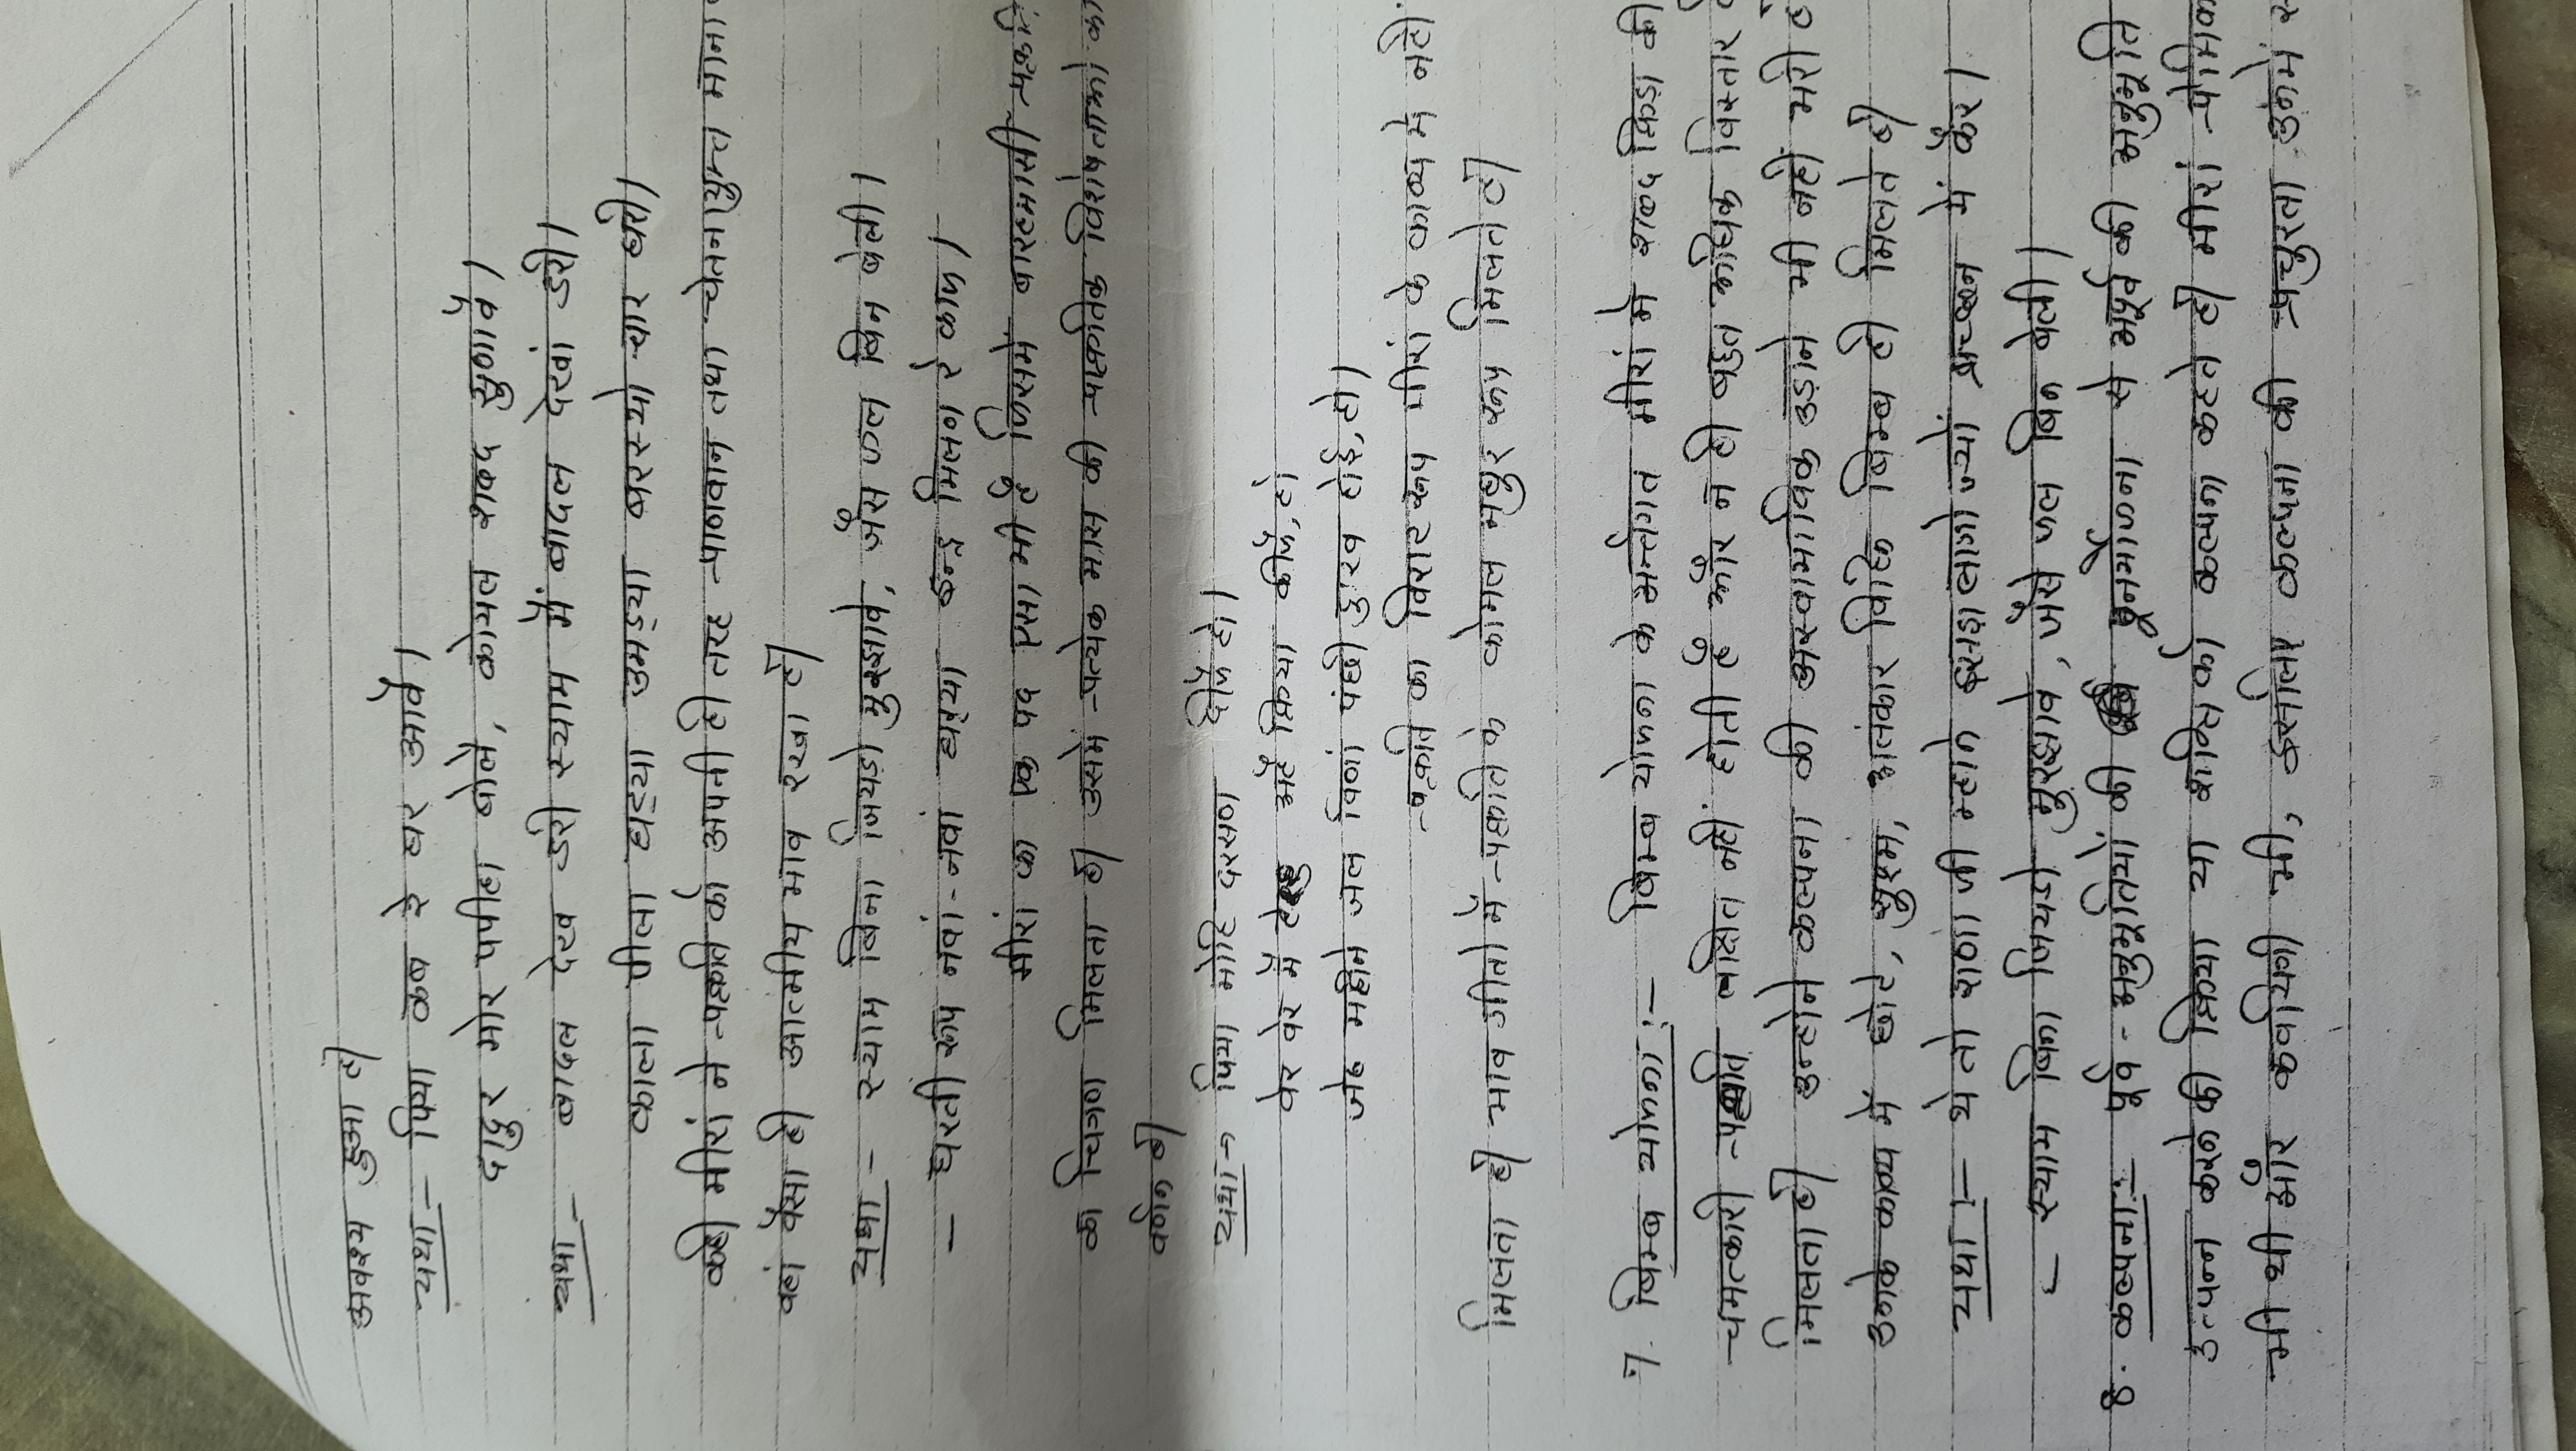 अवश्य हुआ है।
यथा – पिया कब रे घर आवे।
दादुर मोर पपीहा बोले, कोयल सबद सुणावे।
यथा – बादल देख डरी स्याम मैं बादल देख्यां डरी।
काला पीला घट्या उमड्या बरस्यो चार धरी।
कवि मीरां ने प्रकृति को अपनी ही तरह भावना तथा चेतनायुक्त माना
वहां वैसा ही आत्मीय भाव रखा है।
यथा – स्याम बिना जियडो मुरझावे, जैसे जल बिन बेली।
– धरती रूप नवां-नवां धरया इन्द्र मिलण रे काज।
मीरां का एक पद ऐसा भी है जिसमें बारहमासी
का चित्रण मिलता है। उसमे प्रत्येक मास की प्राकृतिक विशेषताओं का
वर्णन है।
यथा – पिया मोहि दरसण दीजै हो।
बेर बेर में टेरहूं अहे क्रिया कीजै, हो
जेठ महीने जल विणां पंछी दुःख होई, हो।
प्रकृति का विराट रूप मीरां के काव्य मे नही
मिलता है। भाव गीतो में प्रकृति के कोमल मधुर रूप मिलते है।
7. बिम्ब योजना :– बिम्ब योजना के अन्तर्गत मीरां मे शब्द क्रिडा की
चमत्कारी प्रवृति लक्षित नहीं होती है और न ही बहुत अधिक विस्तार
मिलता है। इन्होने कल्पना की अस्वाभाविक उड़ाने भी नही भरी है
उनके काव्य मे छोटे, सुक्ष्म, अलंकार विहिन बिम्ब ही मिलते है।
यथा :– थे तो पलक उघाड़ो दीनानाथ
– स्याम बिना जियडो मुरझावे, जैसे जल बिन बेली।
8. कल्पना :– पूर्व-अनुभूतियों की पुनर्योजना से अपूर्व की अनुभूति
उत्पन्न करने की क्रिया या शक्ति को कल्पना कहते है। मीरां
भी थी और कवयित्री भी, इसलिए कल्पना की प्रचुरता उनमें